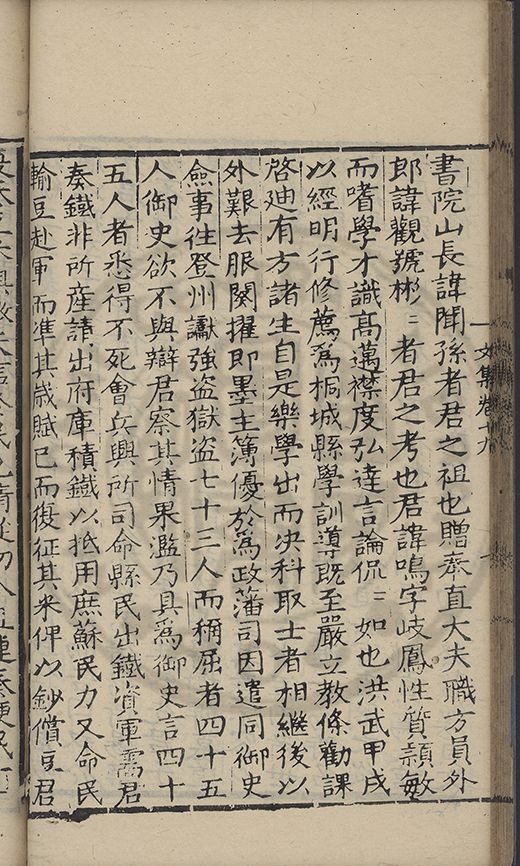 書院山長諱聞孫者君之祖也贈奉直大夫職方員外
郎諱觀號彬〻者君之考也君諱鳴字岐鳳性質頴敏
而嗜學才識高邁襟度弘達言論侃〻如也洪武甲戌
以經明行修薦爲桐城縣學訓導既至嚴立教條勸課
啓廸有方諸生自是樂學出而决科取士者相繼後以
外艱去服闋擢即墨主簿優於爲政藩司因遣同御史
僉事往登州讞強盗獄盗七十三人而稱屈者四十五
人御史欲不與辯君察其情果濫乃具爲御史言四十
五人者悉得不死會兵興所司命縣民出鐵資軍需君
奏鐵非所産請出府庫積鐵以抵用庶蘇民力又命民
輸豆赴軍而準其歳賦已而復征其米俾以鈔償豆君
文集卷十九